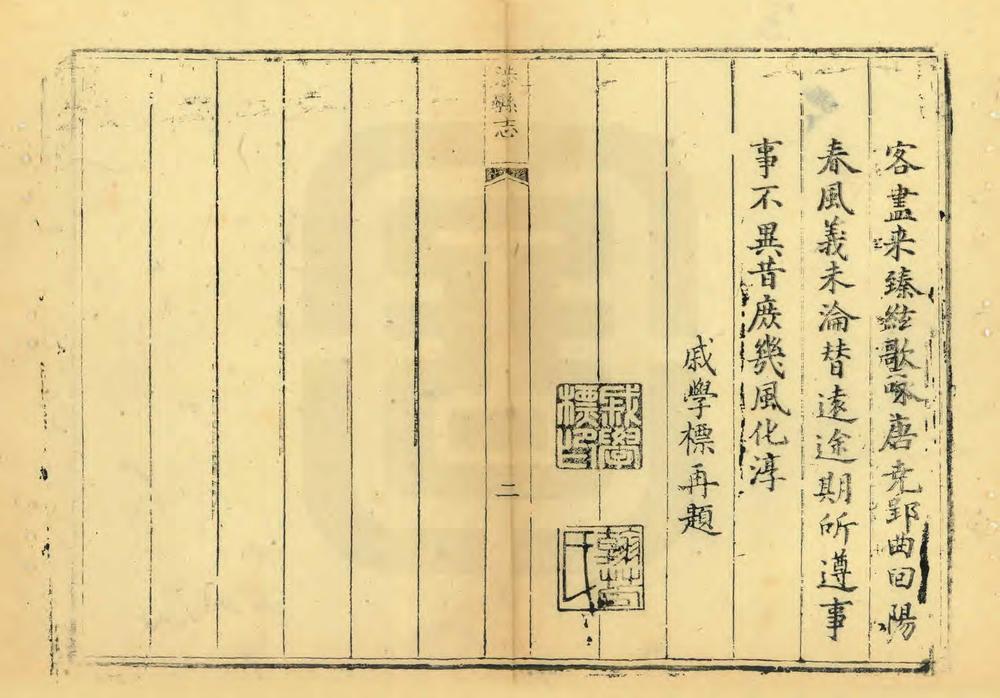 客盡来臻絃歌唐尭郢曲回陽
春風義未淪替遠途期所遵事
事不異昔庻幾風化淳
戚學標再題
戚學標印
翰芳氏
涉縣志
二